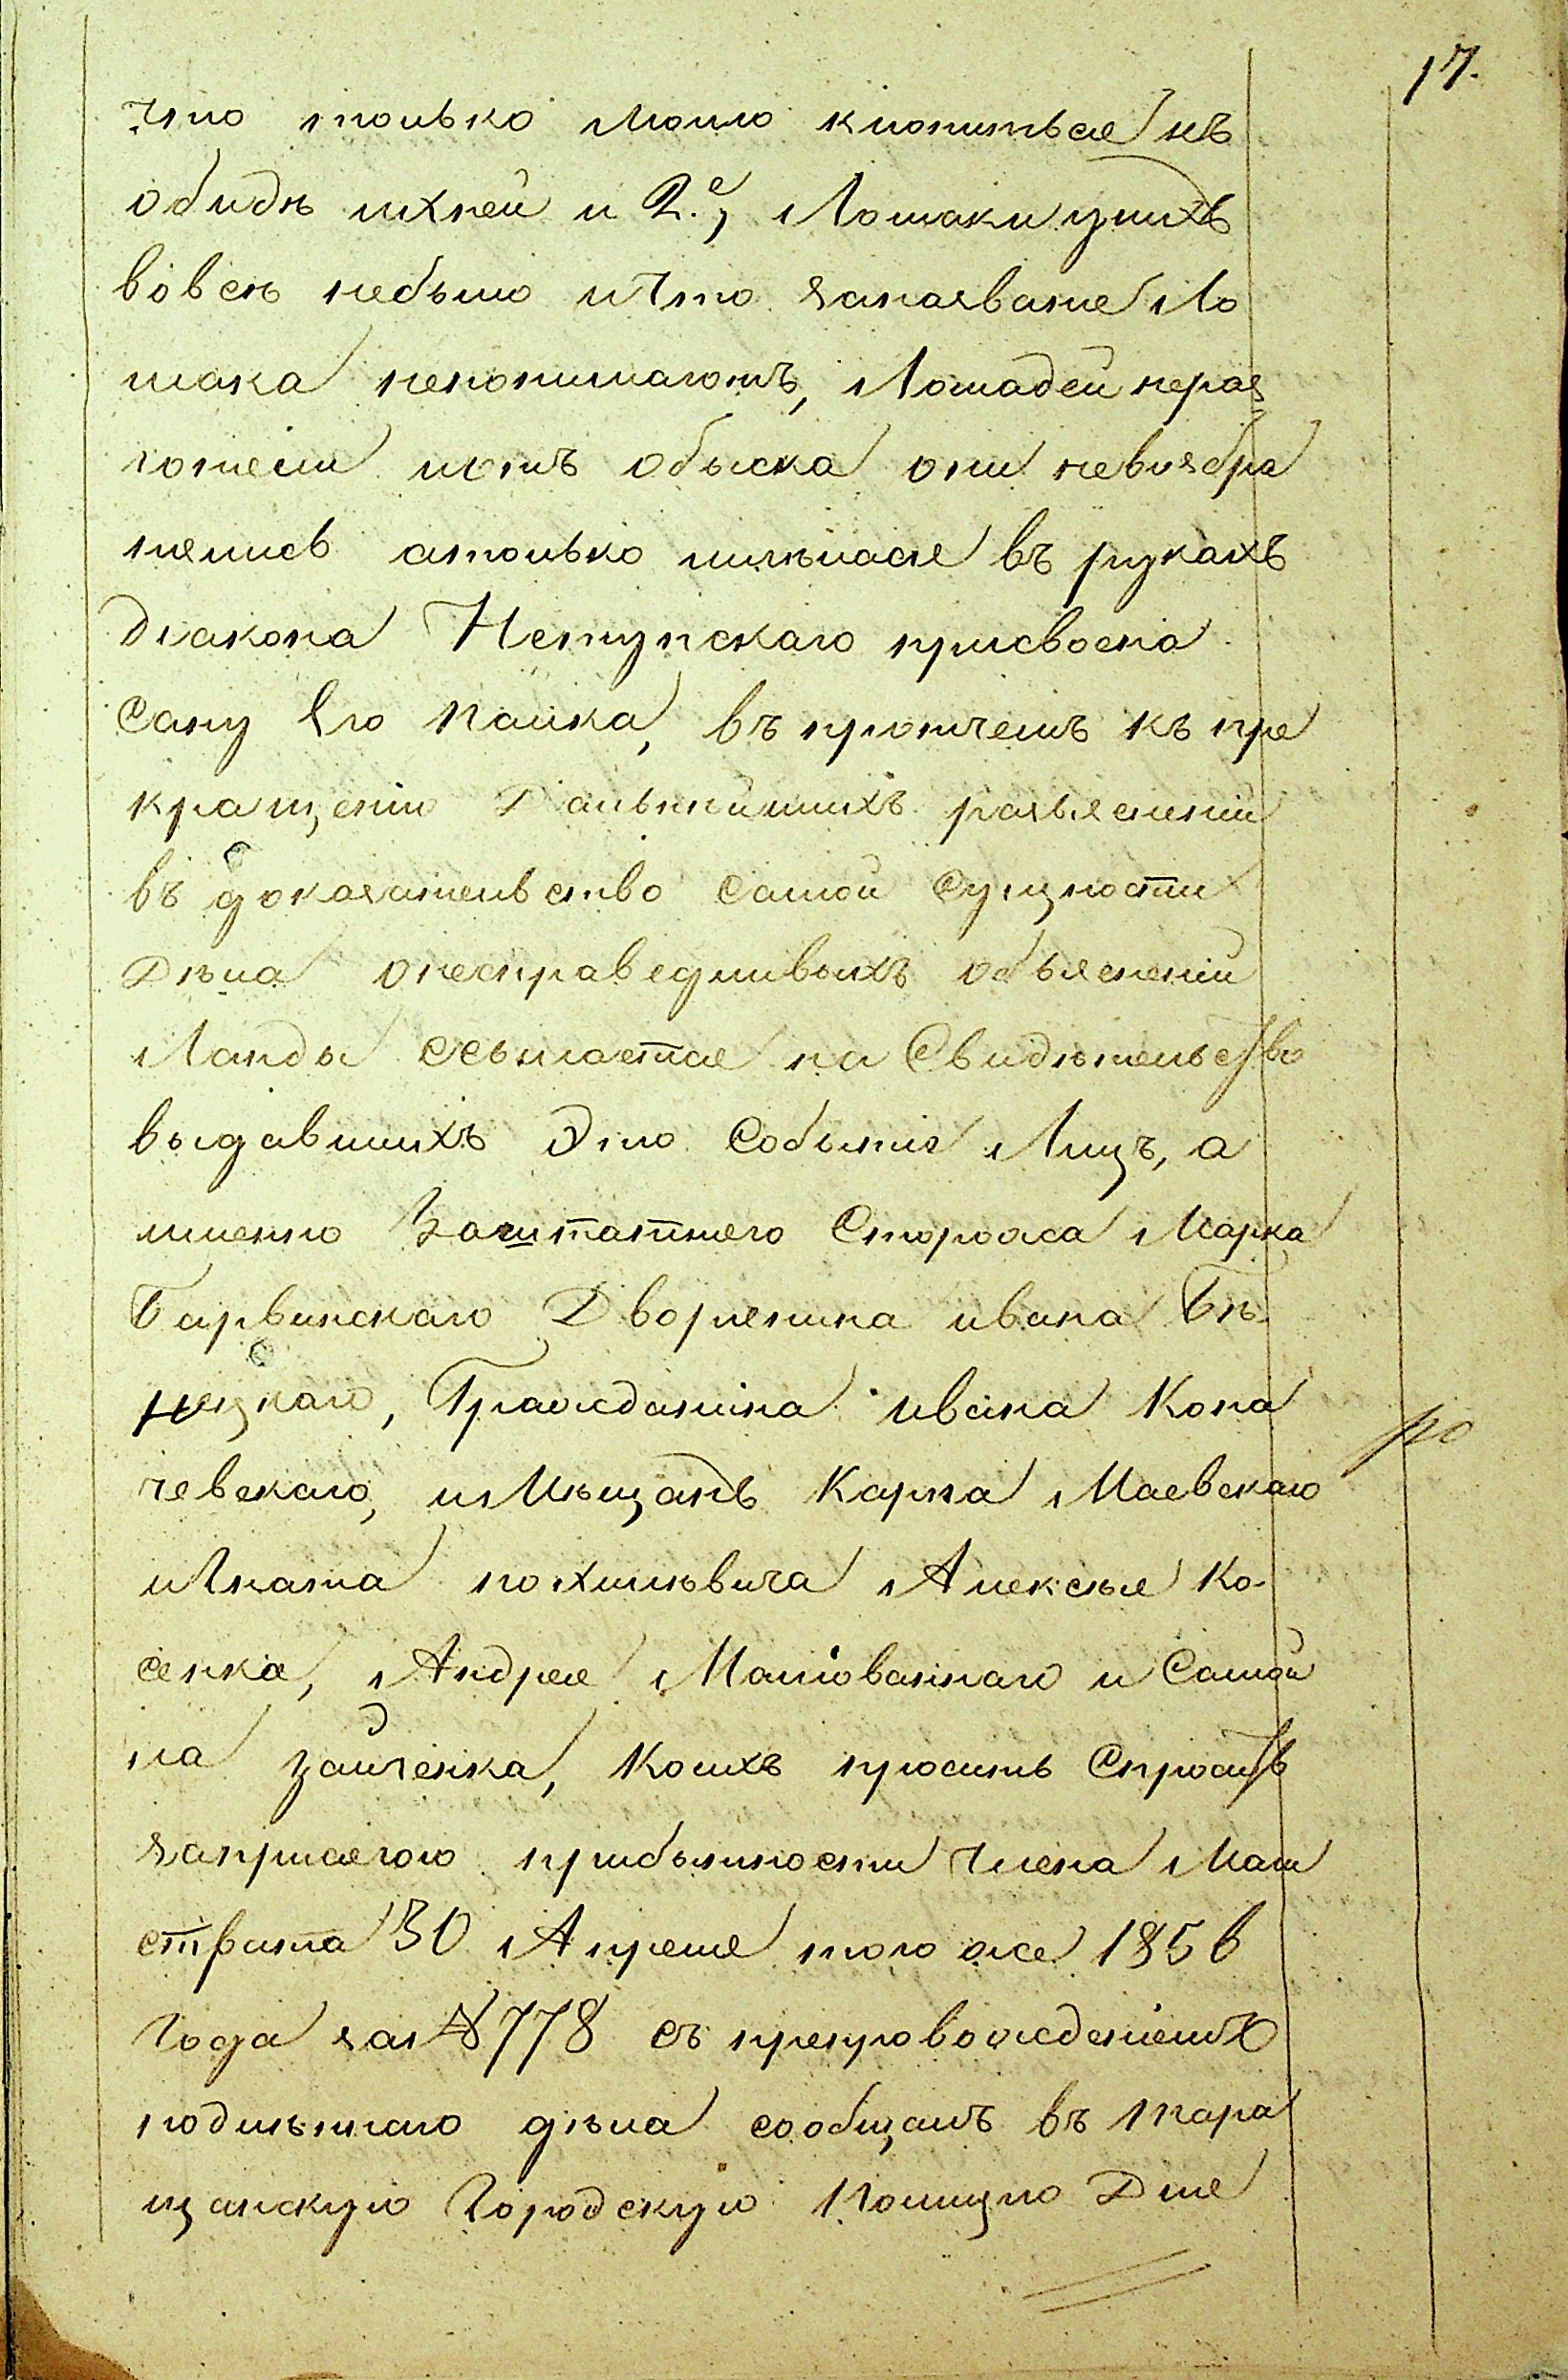 17.
что только могло клонитьсе къ
обидѣ ихней и 2.е, Лошаки унихъ
вовсѣ небыло и что заназвание Ло
шака непонимаютъ, Лошадей нераз
гонели иотъ обыска они невозбра
нелись атолько имѣласе въ рукахъ
діакона Нетупскаго присвоена
Сану Его Палка, въ протчемъ къ пре
кращенію Дальнѣйшихъ разъесненій
въ доказательство самой Сущности
Дѣла онесправедливыхъ объесненій
Ланды ссылаетсе на Свидѣтельство
выдавшихъ Это Событіе Лицъ, а
именно Заштатнего Сторожа Марка
Барвинскаго Дворенина ивана Бѣ
нецкаго, Гражданина ивана Копа
чевскаго, и Мѣщанъ Карпа Маевскаго
и Игната похилѣвича Алексѣе Ко-
сенка, Андрее Малёваннаго и Самой
ла Зайченка, Коихъ просить Спросить
заприсегою прибытности члена Маги
страта 30 Апреле того же 1856
Года за № 778 съ препровожденіемъ
подлѣннаго дѣла сообщалъ въ Тара
щанскую Городскую Полицію Дле